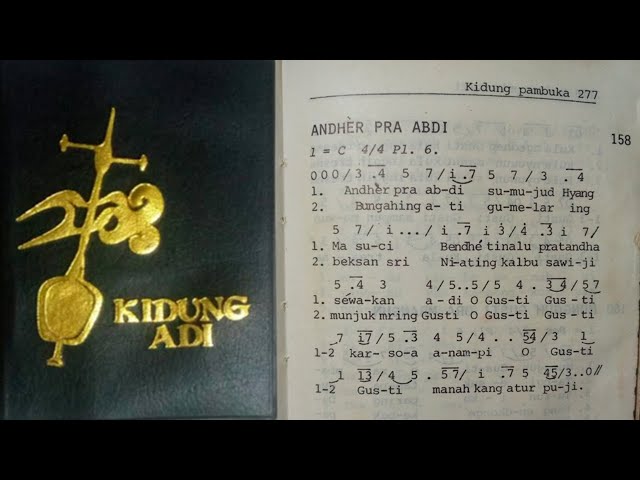 KIDUNG
ADI
Kidung pambuka 277
ANDHÈR PRA ABDI
158
1 = C 4/4 Pl. 6.
0 0 0 / 3 .4 5 7 / i .7 5 7 / 3 . 4
1. Andhèr pra ab-di su-mu-jud Hyang
2. Bungahing a-ti gu-me-lar ing
5 7/ i ... / i .7 i 3/ 4 .3 i 7/
1. Ma su-ci Bendhé tinalu pratandha
2. beksan sri Ni-ating kalbu sawi-ji
5 .4 3 4/5..5/5 4 . 3 4/5 7
1. séwakan a-di O Gus-ti Gus-ti
2. munjuk mring Gusti O Gus-ti Gus-ti
7 i7/5 .3 4 5/4 . . 54/3 1
1-2 kar-so-a a-nam-pi O Gus-ti
1 13/4 5 . 57/ i .7 5 45/3..0//
1-2 Gus-ti manah kang atur pu-ji.